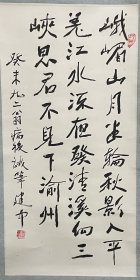 峨嵋山月半輪秋影入平
羌江水流夜發清溪向三
峽思君不見下渝州
癸未九二翁病後試筆